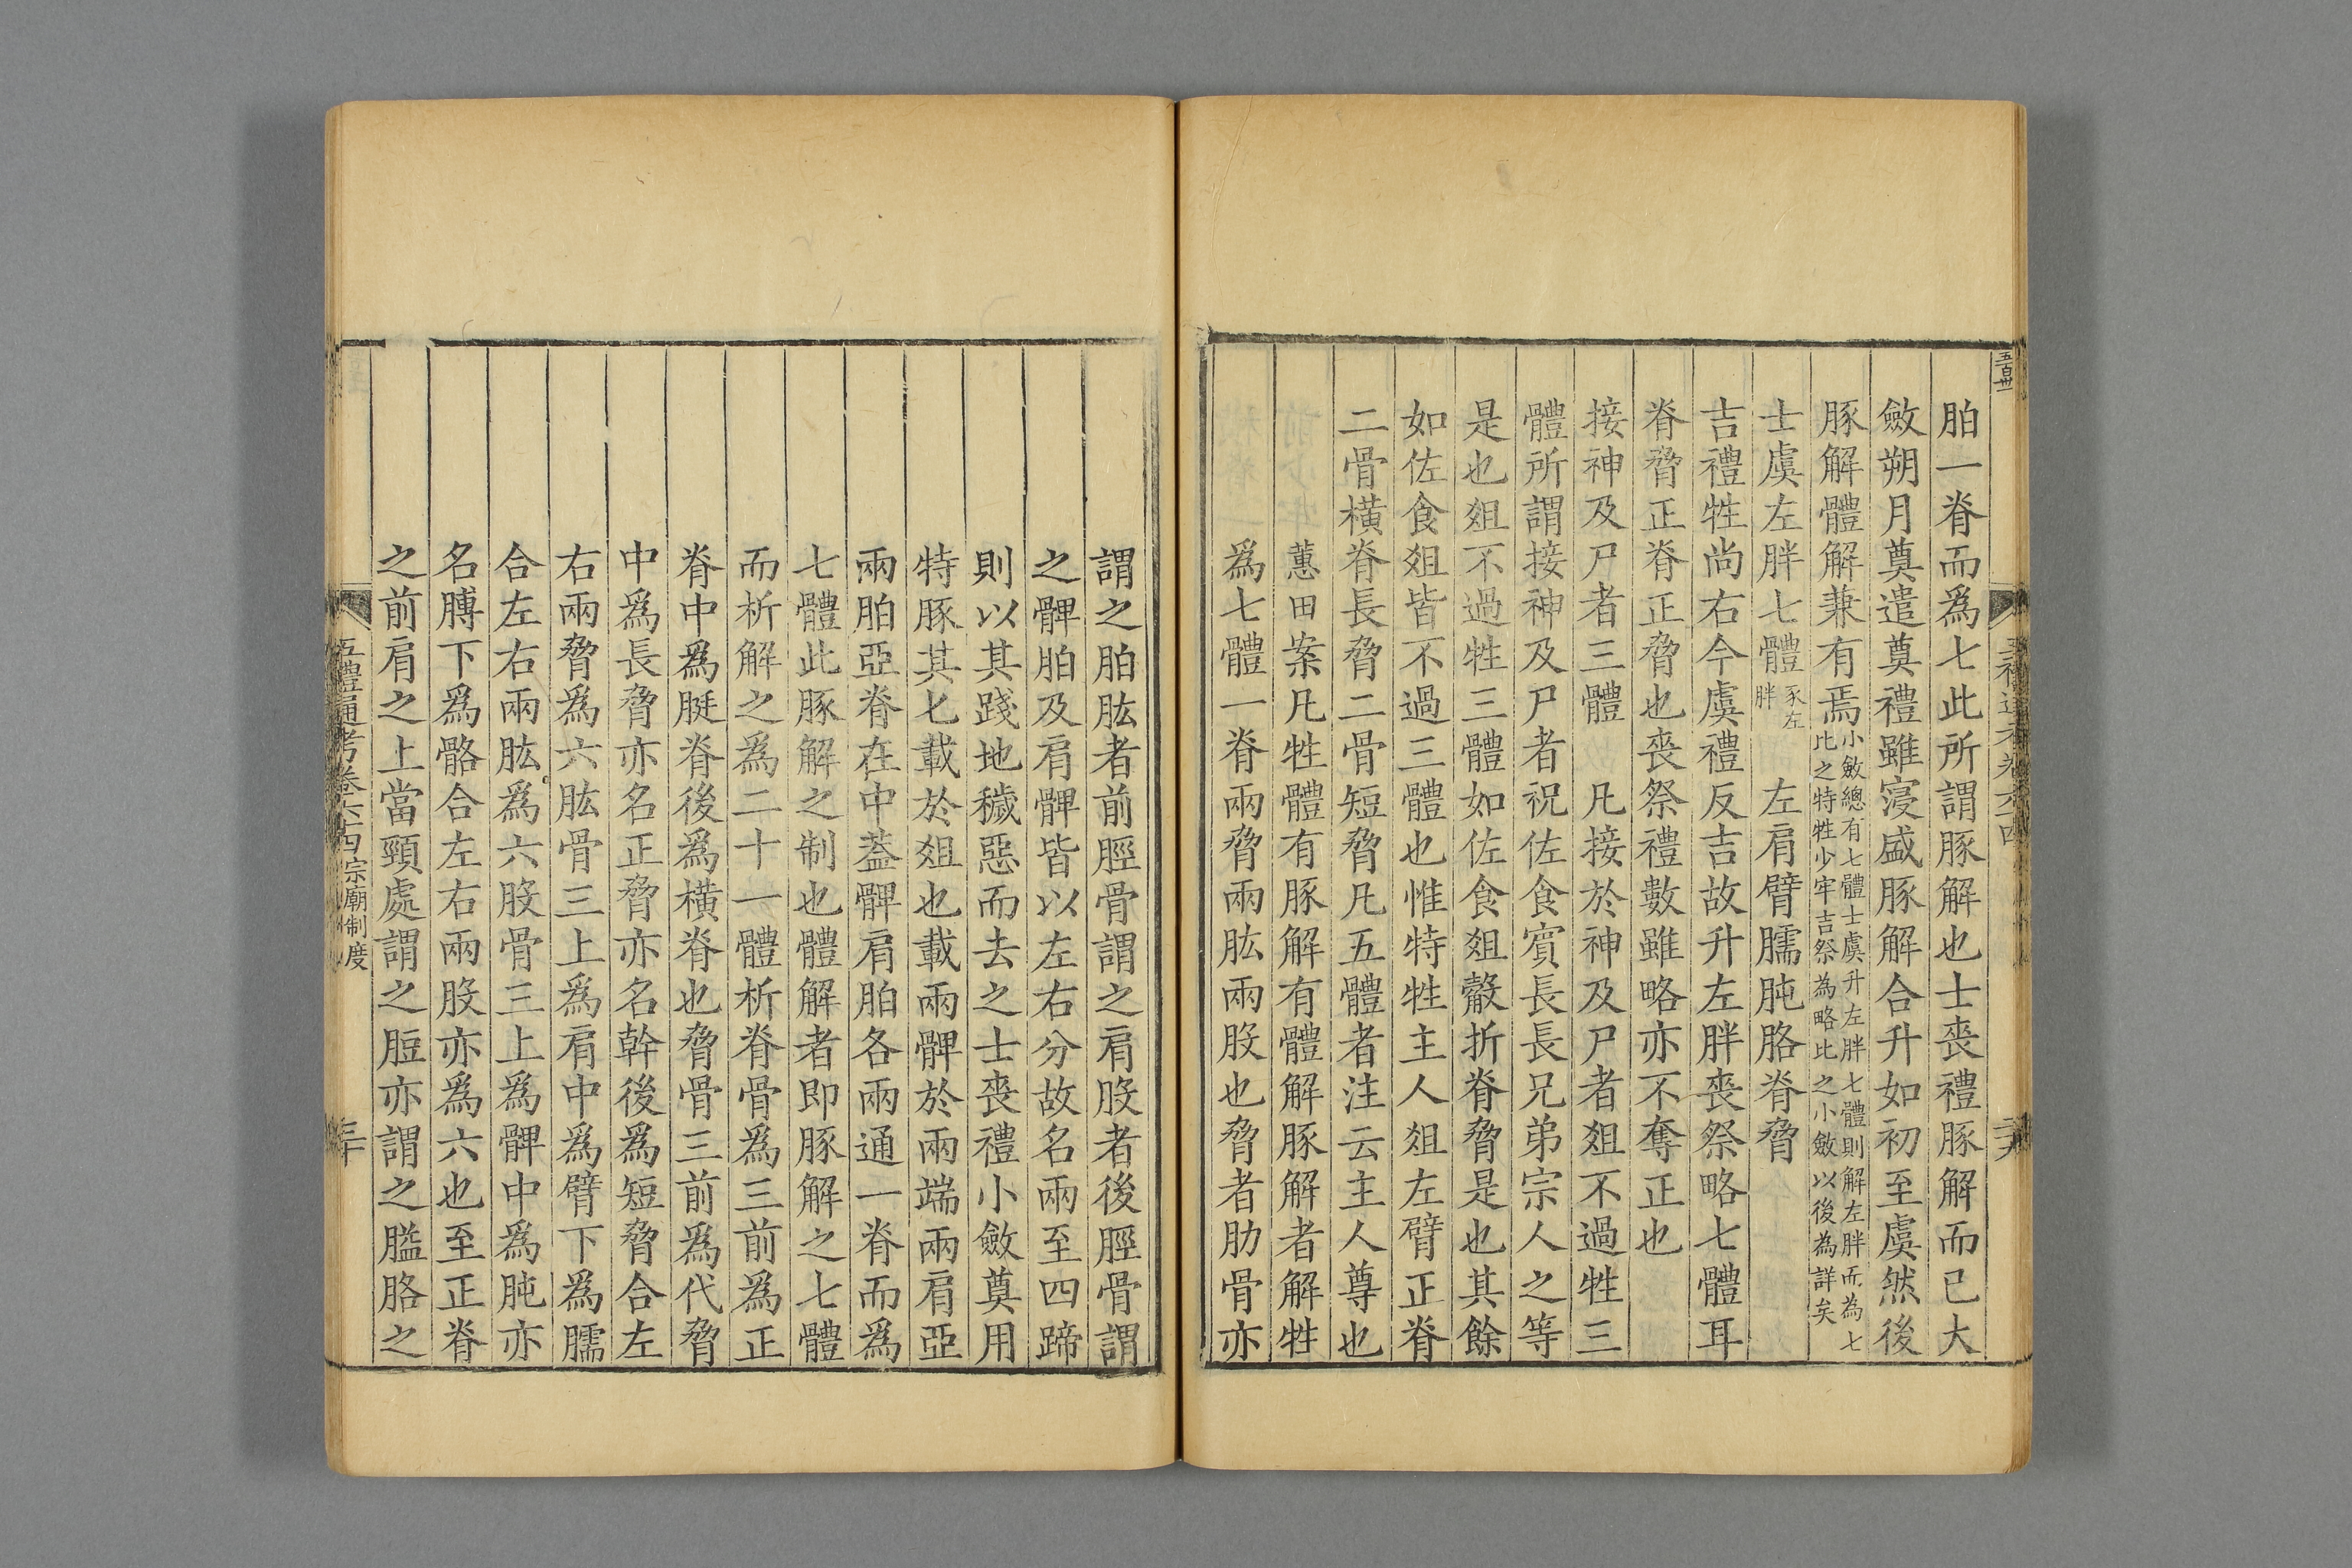 五百卅一
胉一脊而爲七此所謂豚解也士喪禮豚解而已大
斂朔月奠遣奠禮雖寖盛豚解合升如初至虞然後
豚解體解兼有焉小斂總有七體士虞升左胖七體則解左胖而為七
比之特牲少牢吉祭為略比之小斂以後為詳矣
士虞左胖七體豕左
胖
左肩臂臑肫胳脊脅
吉禮牲尚右今虞禮反吉故升左胖喪祭略七體耳
脊脅正脊正脅也喪祭禮數雖略亦不奪正也
接神及尸者三體
凡接於神及尸者俎不過牲三
體所謂接神及尸者祝佐食賓長長兄弟宗人之等
是也俎不過牲三體如佐食俎觳折脊脅是也其餘
如佐食俎皆不過三體也惟特牲主人俎左臂正脊
二骨橫脊長脅二骨短脅凡五體者注云主人尊也
蕙田案凡牲體有豚解有體解豚解者解牲
爲七體一脊兩脅兩肱兩股也脅者肋骨亦
謂之胉肱者前脛骨謂之肩股者後脛骨謂
之髀胉及肩髀皆以左右分故名兩至四蹄
則以其踐地穢惡而去之士喪禮小斂奠用
特豚其匕載於俎也載兩髀於兩端兩肩亞
兩胉亞脊在中葢髀肩胉各兩通一脊而爲
七體此豚解之制也體解者即豚解之七體
而析解之爲二十一體析脊骨爲三前爲正
脊中爲脡脊後爲橫脊也脅骨三前爲代脅
中爲長脅亦名正脅亦名幹後爲短脅合左
右兩脅爲六肱骨三上爲肩中爲臂下爲臑
合左右兩肱爲六股骨三上爲髀中爲肫亦
名膊下爲骼合左右兩股亦爲六也至正脊
之前肩之上當頸處謂之脰亦謂之膉胳之
五禮通考卷六十四宗廟制度
三十